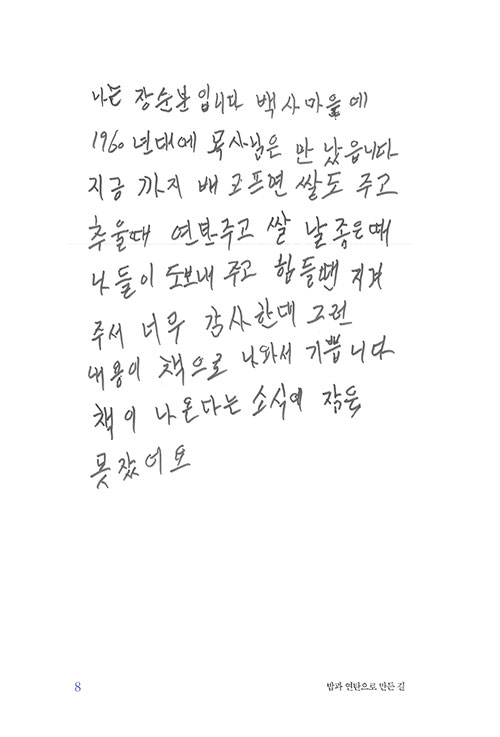 나는 장순분입니다 백사마을에
1960년대에 목사님은 만났읍니다
지금 까지 배고프면 쌀도 주고
추울때 연탄주고 쌀 날좋은때
나들이도보내주고 힘들땐 지켜
주서 너무 감사한데 그런
내용이 책으로 나와서 기쁩니다
책이 나온다는 소식에 잠을
못잤어요
8 밥과 연탄으로 만든 길